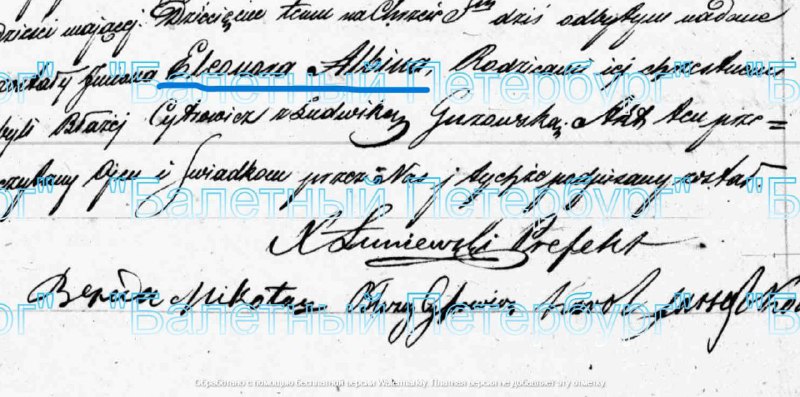 mającej. Dziecięciu temu na Chrzcie Stm dziś odbytym nadane
zostały Imiona Eleonora Albina, Rodzicami jej chrzestnemi
byli Błażej Cytrowicz z Ludwiką Gurowską. Akt ten prze=
czytany Ojcu i Świadkom przez Nas i tychże podpisany został.
X Łuniewski Prefekt
Mikołaj Karol Jussef
"Балетный Петербург"
Обработано с помощью бесплатной версии Watermarkly. Платная версия не добавляет эту отметку.